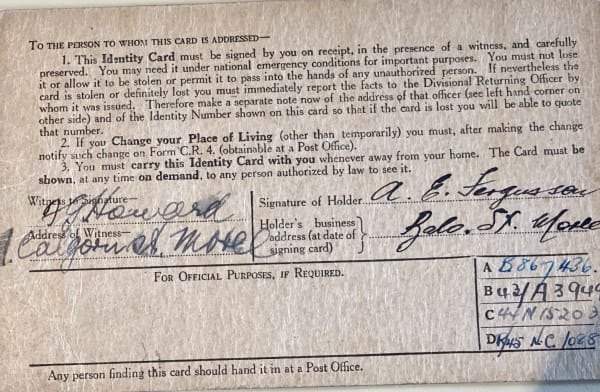 TO THE PERSON TO WHOM THIS CARD IS ADDRESSED—
1. This Identity Card must be signed by you on receipt, in the presence of a witness, and carefully
preserved. You may need it under national emergency conditions for important purposes. You must not lose
it or allow it to be stolen or permit it to pass into the hands of any unauthorized person. If nevertheless the
card is stolen or definitely lost you must immediately report the facts to the Divisional Returning Officer by
whom it was issued. Therefore make a separate note now of the address of that officer (see left hand corner on
other side) and of the Identity Number shown on this card so that if the card is lost you will be able to quote
that number.
2. If you Change your Place of Living (other than temporarily) you must, after making the change
notify such change on Form C.R. 4. (obtainable at a Post Office).
3. You must carry this Identity Card with you whenever away from your home. The Card must be
shown, at any time on demand, to any person authorized by law to see it.
Witness to Signature— Howard
Signature of Holder A. E. Fergusson
Address of Witness—
Holder's business
address (at date of
signing card)
FOR OFFICIAL PURPOSES, IF REQUIRED.
A B867436.
B 42/A 3949
C
D N.C 1088
Any person finding this card should hand it in at a Post Office.